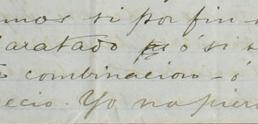 mos si por fin s
aratado ó si s
combinacion - ó
ecio. Yo no pier